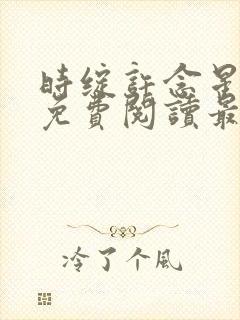 时绽許念星
免費閱讀最
冷了个風